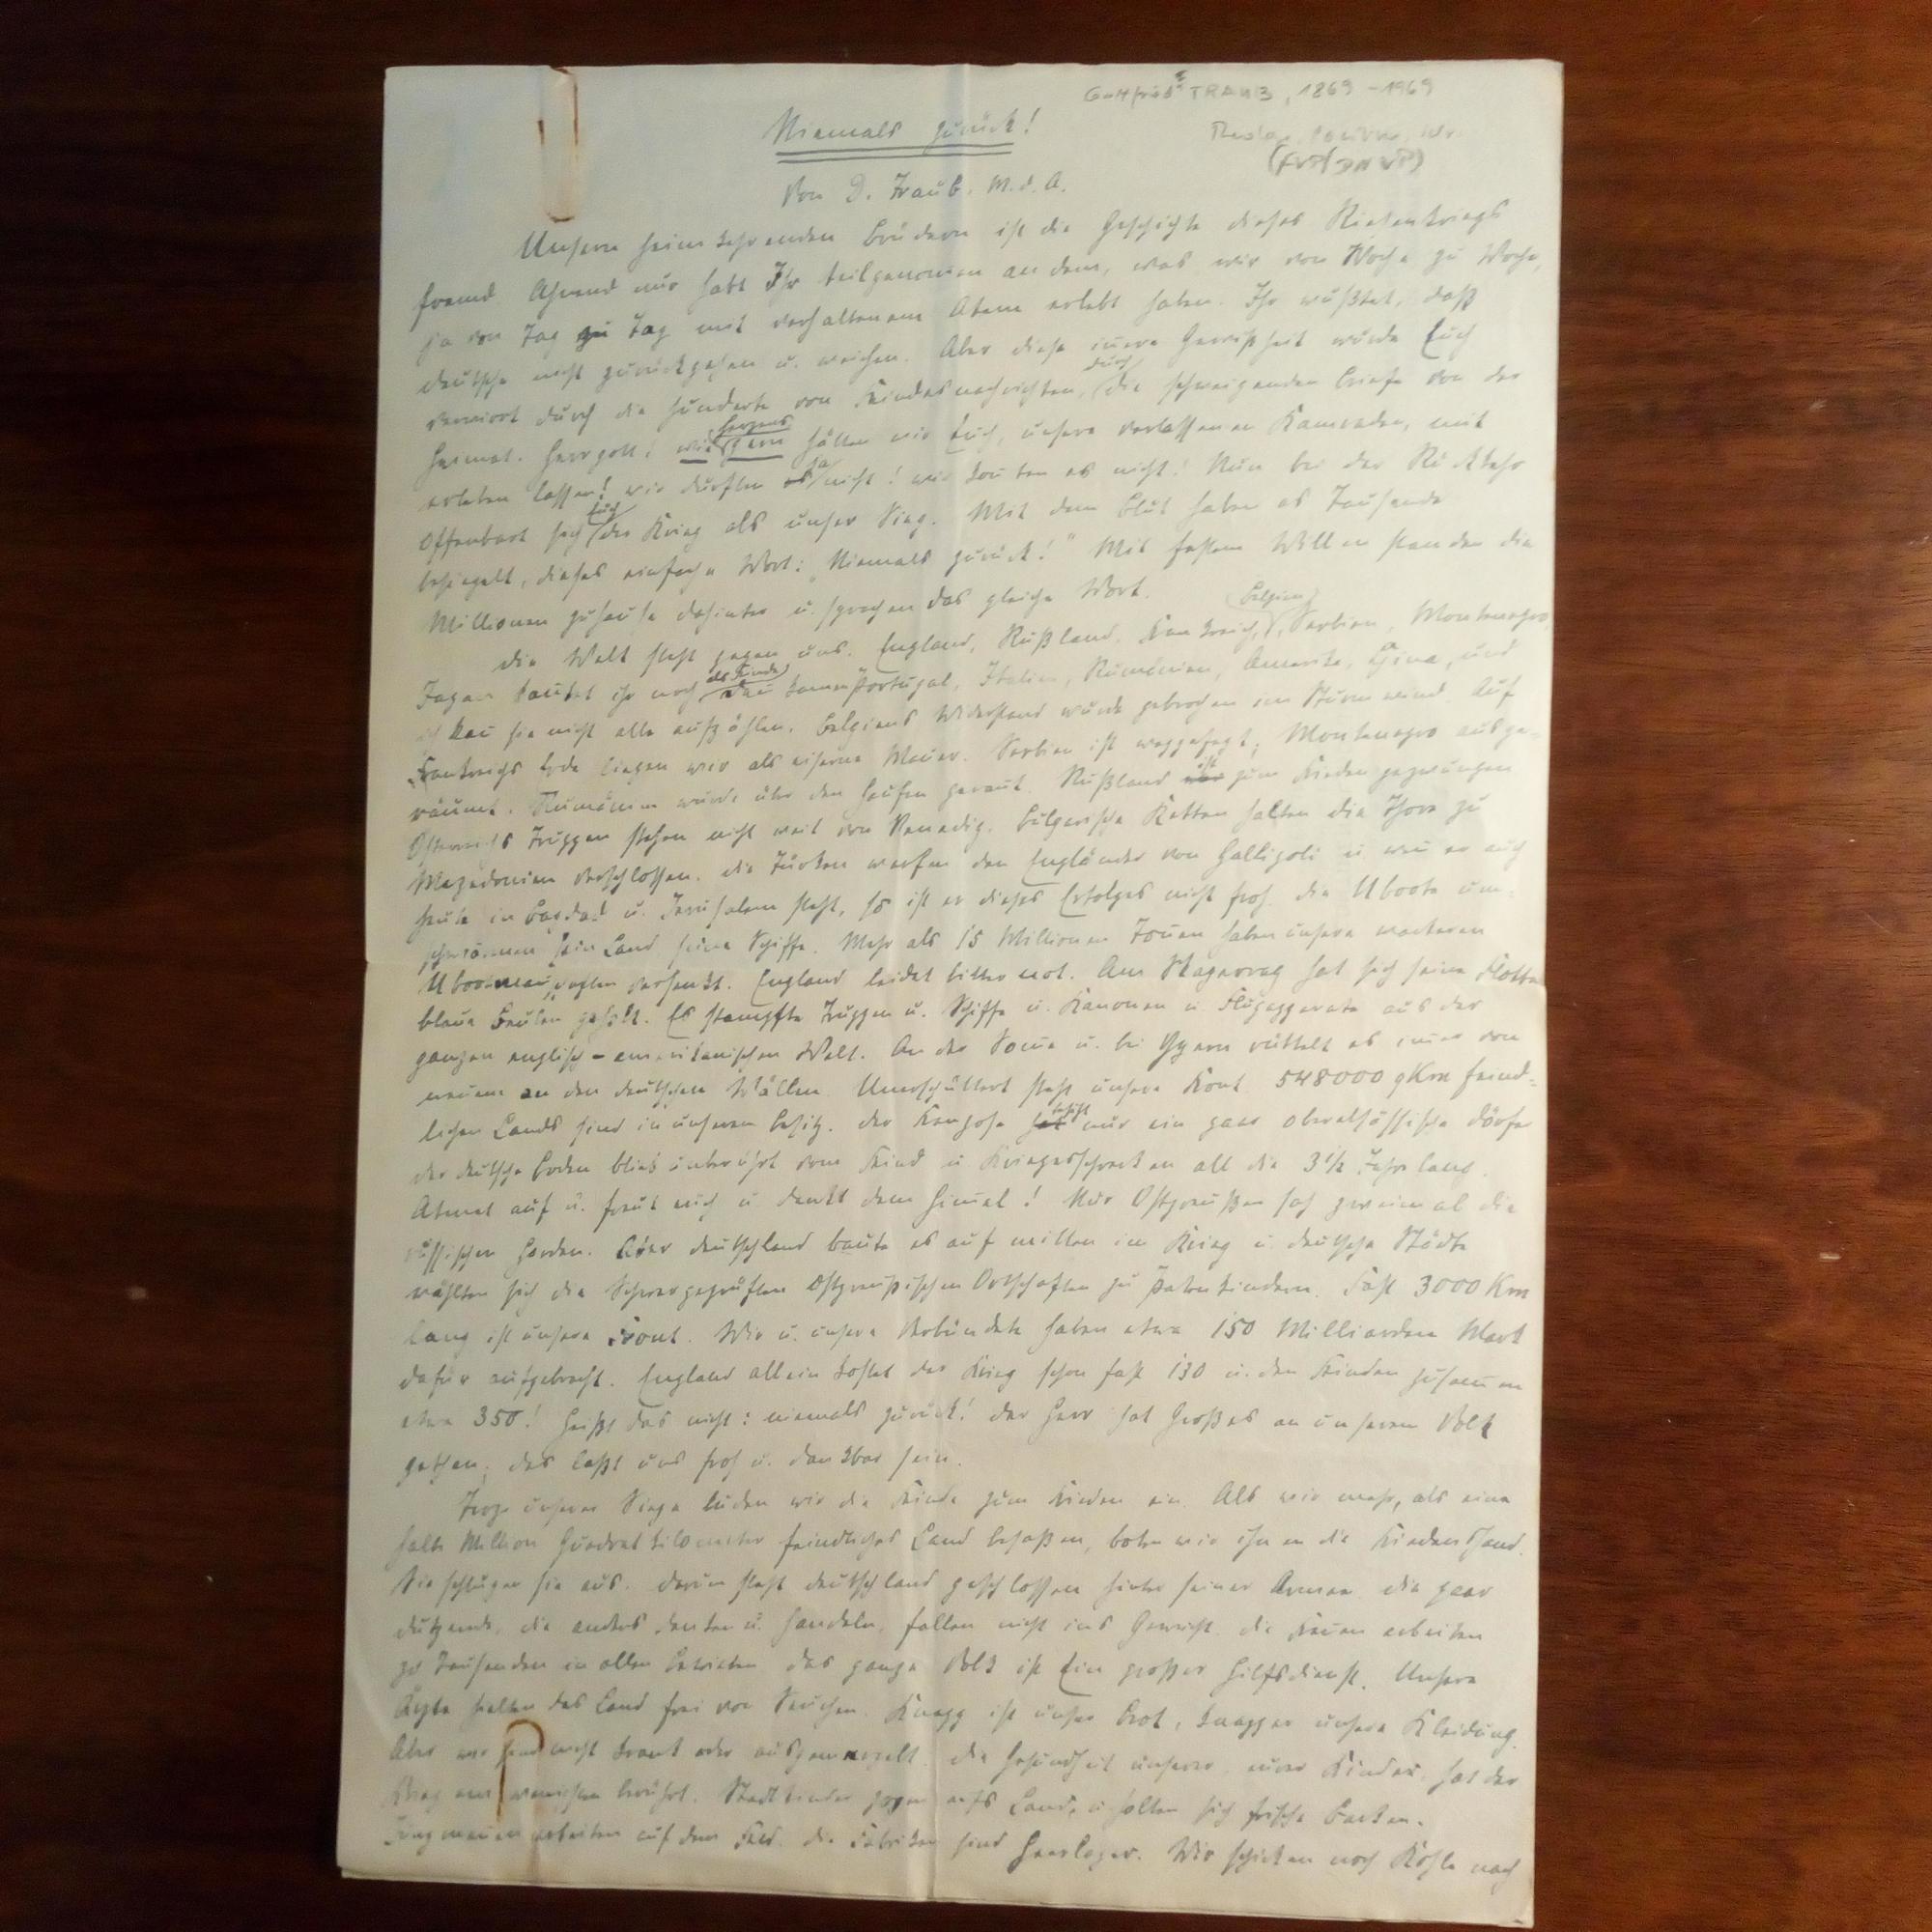 Gottfried TRAUB, 1869 - 1969
Niemals zurück!
Theolog
(FVP/DNVP)
Von D. Traub. M.d.A.
Unsern heimkehrenden Brüdern ist die Geschichte dieses Riesenkriegs
fremd. Ahnend nur habt Ihr teilgenommen an dem, was wir von Woche zu Woche,
ja von Tag zu Tag mit verhaltenem Atem erlebt haben. Ihr wußtet, daß
Deutsche nicht zurückgehen u. weichen. Aber diese innere Gewißheit wurde Euch
verwirrt durch die Hunderte von Feindesnachrichten, durch die schweigenden Briefe von der
Heimat. Herrgott! wie herzensgern hätten wir Euch, unsere verlassenen Kameraden, mit
erleben lassen! wir durften es ja nicht! wir konnten es nicht! Nun bei der Rückkehr
offenbart sich Euch der Krieg als unser Sieg. Mit dem Blut haben es Tausende
besiegelt, dieses einfache Wort: „Niemals zurück!" Mit festem Willen standen die
Millionen zuhause dahinter u. sprachen das gleiche Wort.
Die Welt steht gegen uns. England, Rußland, Frankreich, Belgien, Serbien, Montenegro,
Japan kanntet ihr noch als Feinde, dann kamen Portugal, Italien, Rumänien, Amerika, China, und
ich kann sie nicht alle aufzählen. Belgiens Widerstand wurde gebrochen im Sturmwind. Auf
Frankreichs Erde liegen wir als eiserne Mauer. Serbien ist weggefegt; Montenegro ausge-
räumt. Rumänien wurde über den Haufen gerannt. Rußland ist zum Frieden gezwungen
Österreichs Truppen stehen nicht weit von Venedig. Bulgarische Ketten halten die Thore zu
Mazedonien verschlossen. Die Türken warfen den Engländer von Gallipoli u wenn er auch
heute in Bagdad u. Jerusalem steht, so ist er dieses Erfolges nicht froh. Die Uboote um-
schwärmen sein Land seine Schiffe. Mehr als 15 Millionen Tonnen haben unsere wackeren
Ubootmannschaften versenkt. England leidet bitter not. Am Skagerrag hat sich seine Flotte
blaue Beulen geholt. Es stampfte Truppen u. Schiffe u. Kanonen u Flugapparate aus der
ganzen englisch-amerikanischen Welt. An der Somme u. bei Ypern rüttelt es immer von
neuem an den deutschen Wällen. Unerschüttert steht unsere Front. 548000 qKm feind-
lichen Lands sind in unserem Besitz. Der Franzose besitzt nur ein paar oberelsässische Dörfer
der deutsche Boden blieb unberührt vom Feind u Kriegesschrecken all die 3½ Jahre lang.
Atmet auf u. freut euch u. dankt dem Himmel! Nur Ostpreußen sah zweimal die
russischen Horden. Aber Deutschland baute es auf mitten im Krieg u. deutsche Städte
wählten sich die schwergeprüften ostpreußischen Ortschaften zu Patenkindern. Fast 3000 Km
lang ist unsere Front. Wir u. unsere Verbündete haben etwa 150 Milliarden Mark
dafür aufgebracht. England allein kostet der Krieg schon fast 130 u. den Feinden zusammen
etwa 350! Heißt das nicht: niemals zurück! Der Herr hat Großes an unserem Volk
gethan; des laßt uns froh u. dankbar sein.
Troz unserer Siege luden wir die Feinde zum Frieden ein. Als wir mehr, als eine
halbe Million Quadratkilometer feindliches Land besaßen, boten wir ihnen die Friedenshand.
Sie schlugen sie aus. Darum steht Deutschland geschlossen hinter seiner Armee. Die paar
Dutzende, die anders denken u. handeln, fallen nicht ins Gewicht. Die Frauen arbeiten
zu Tausenden in allen Betrieben. Das ganze Volk ist Ein großer Hilfsdienst. Unsere
Ärzte halten das Land frei von Seuchen. Knapp ist unser Brot, knapper unsere Kleidung.
Aber wir sind nicht krank oder ausgemergelt. Die Gesundheit unserer, eurer Kinder, hat der
Krieg am wenigsten berührt. Stadtkinder zogen aufs Land, u. holten sich frische Backen.
Jungmannen arbeiten auf dem Feld. Die Fabriken sind Heerlager. Wir schicken noch Kohle nach